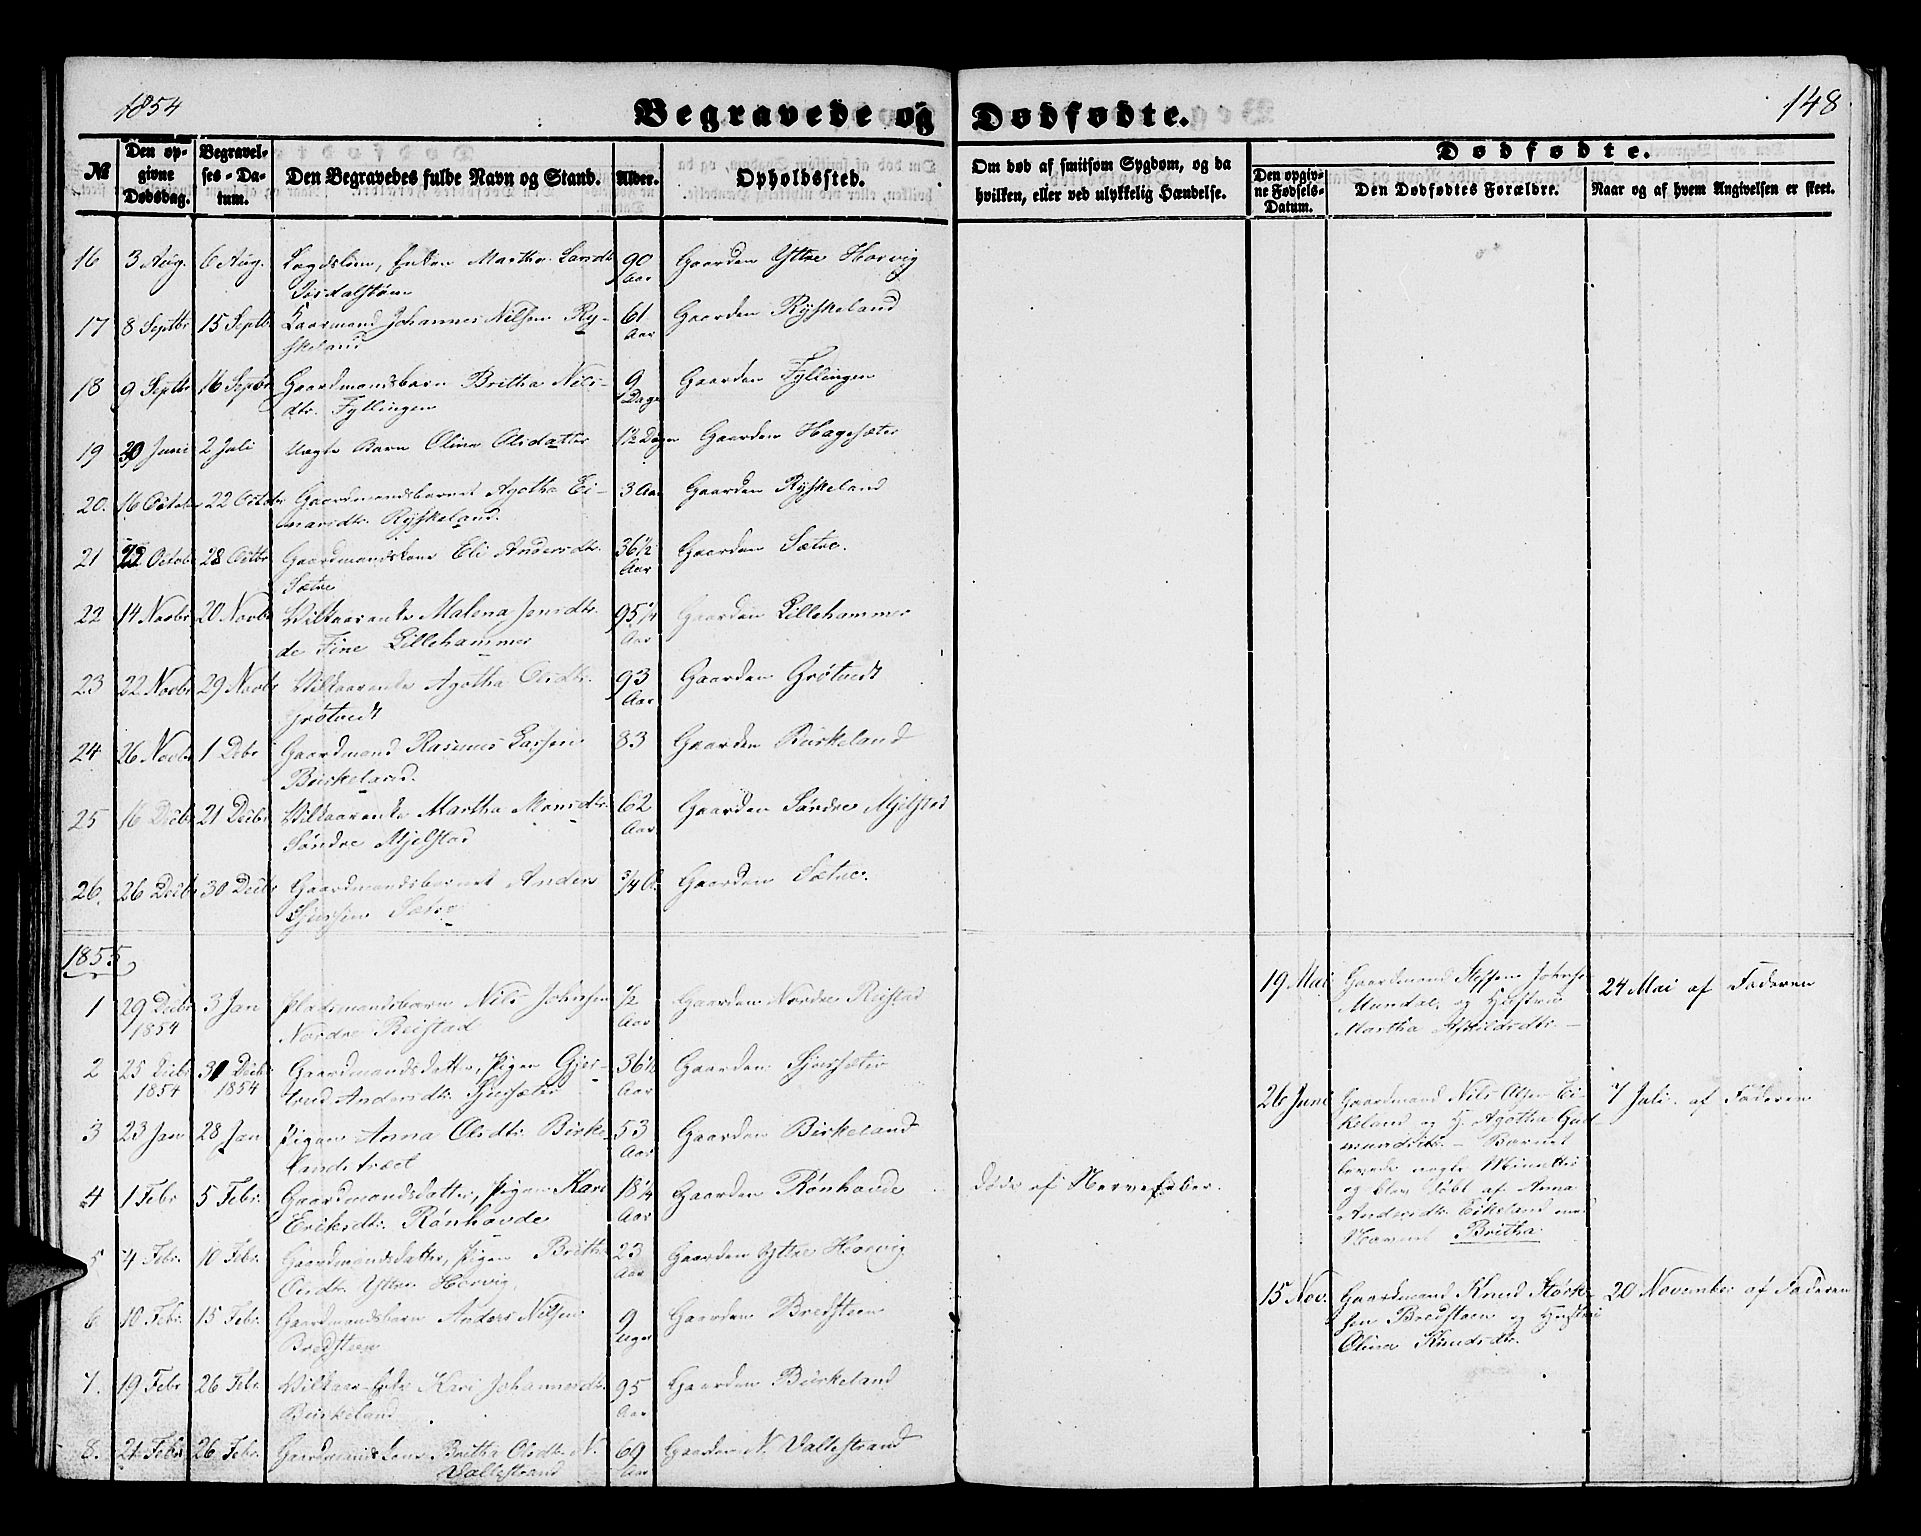 1854
148
Begravede og Dødfødte.
№
Den opgivne Dødsdag.
Begravelses-Datum.
Den Begravedes fulde Navn og Stand.
Alder.
Opholdssted.
Om død af smitsom Sygdom, og da hvilken, eller ved ulykkelig Hændelse.
Dødfødte.
Den opgivne Fødsels-Datum.
Den Dødfødtes Forældre.
Naar og af hvem Angivelsen er skeet.
16 3 Aug. 6 Aug. Enken Martha Larsdtr 90 Gaarden Yttre Horvig
Aar
17 8 Septbr 15 Septbr Kaarmand Johannes Nilsen Ry- 61 Gaarden Ryskeland
skeland Aar
18 9 Septbr 16 Septbr Gaardmandsbarn Britha Nils- 9 Gaarden Fyllingen
dtr. Fyllingen Dage
19 30 Juni 2 Juli Uægte Barn Olina Olsdatter 1½ Gaarden Hagesæter
20. 16 October 22 Octobr Gaardmandsbarnet Agatha Ei- 3 Aar Gaarden Ryskeland
narsdtr. Ryskeland.
21 22 Octobr 28 Octbr Gaardmandskone Eli Andersdtr. 36½ Gaarden Sætre.
Sætre Aar
22 14 Novbr 20 Novbr Vilkaarenke Malena Jensdtr. 95¼ Gaarden Lillehammer
de Fine Lillehammer Aar
23 22 Novbr 29 Novbr Vilkaarenke Agatha Olsdtr. 93 Gaarden Grøtvedt
Grøtvedt Aar
24 26 Novbr 1 Debr Gaardmand Rasmus Lassen 83 Gaarden Birkeland
Birkeland.
25 16 Decbr 21 Decbr Vilkaarenke Martha Monsdtr. 62 Gaarden Søndre Mjelstad
Søndre Mjelstad Aar
26. 26 Decbr 30 Decbr Gaardmandsbarnet Anders ¾ Gaarden Sætre.
Sjursen Sætre
1855
1 29 Decbr 3 Jan Pladsmandsbarn Nils Johnsen ½ Gaarden Nordre Reistad
1854 Nordre Reistad Aar
19 Mai Gaardmand Steffen Johnsen 24 Mai af Faderen
Mundal, og Hustru
Martha
2 25 Decbr 31 Decbr Gaardmandsdatter, Pigen Gjer- 36½ Gaarden Sjursæter
1854 1854 trud Andersdtr. Sjursæter Aar
26 Juni Gaardmand Nils Olsen Ei- 7 Juli af Faderen
keland og H. Agatha Gud-
mundsdtr. – Barnet
levede nogle Minutter
og blev døbt af Anna
Andersdtr. Eikeland med
Navnet Britha
3 23 Jan 28 Jan Pigen Anna Olsdtr. Birke- 53 Gaarden Birkeland
landstræet Aar
4 1 Febr 5 Febr. Gaardmandsdatter, Pigen Kari 18¼ Gaarden Rønhovde Døde af Nervefeber.
Eriksdtr. Rønhovde Aar
5 4 Febr. 10 Febr. Gaardmandsdatter, Pigen Britha 23 Gaarden Yttre Horvig
Olsdtr. Yttre Horvig Aar
6 10 Febr. 15 Febr. Gaardmandsbarn Anders Nilsen 9 Gaarden Bredsteen
Bredsteen Uger
15 Nov. Gaardmand Knud Størk- 20 November af Faderen
sen Bredsteen og Hustru
Olina Knudsdtr.
7. 19 Febr 26 Febr. Vilkaar-Enke Kari Johannesdtr. 95 Gaarden Birkeland
Birkeland Aar
8. 21 Febr 26 Febr. Gaardmandskone Britha Olsdtr. N. 69 Gaarden N. Valtestrand
Valtestrand Aar